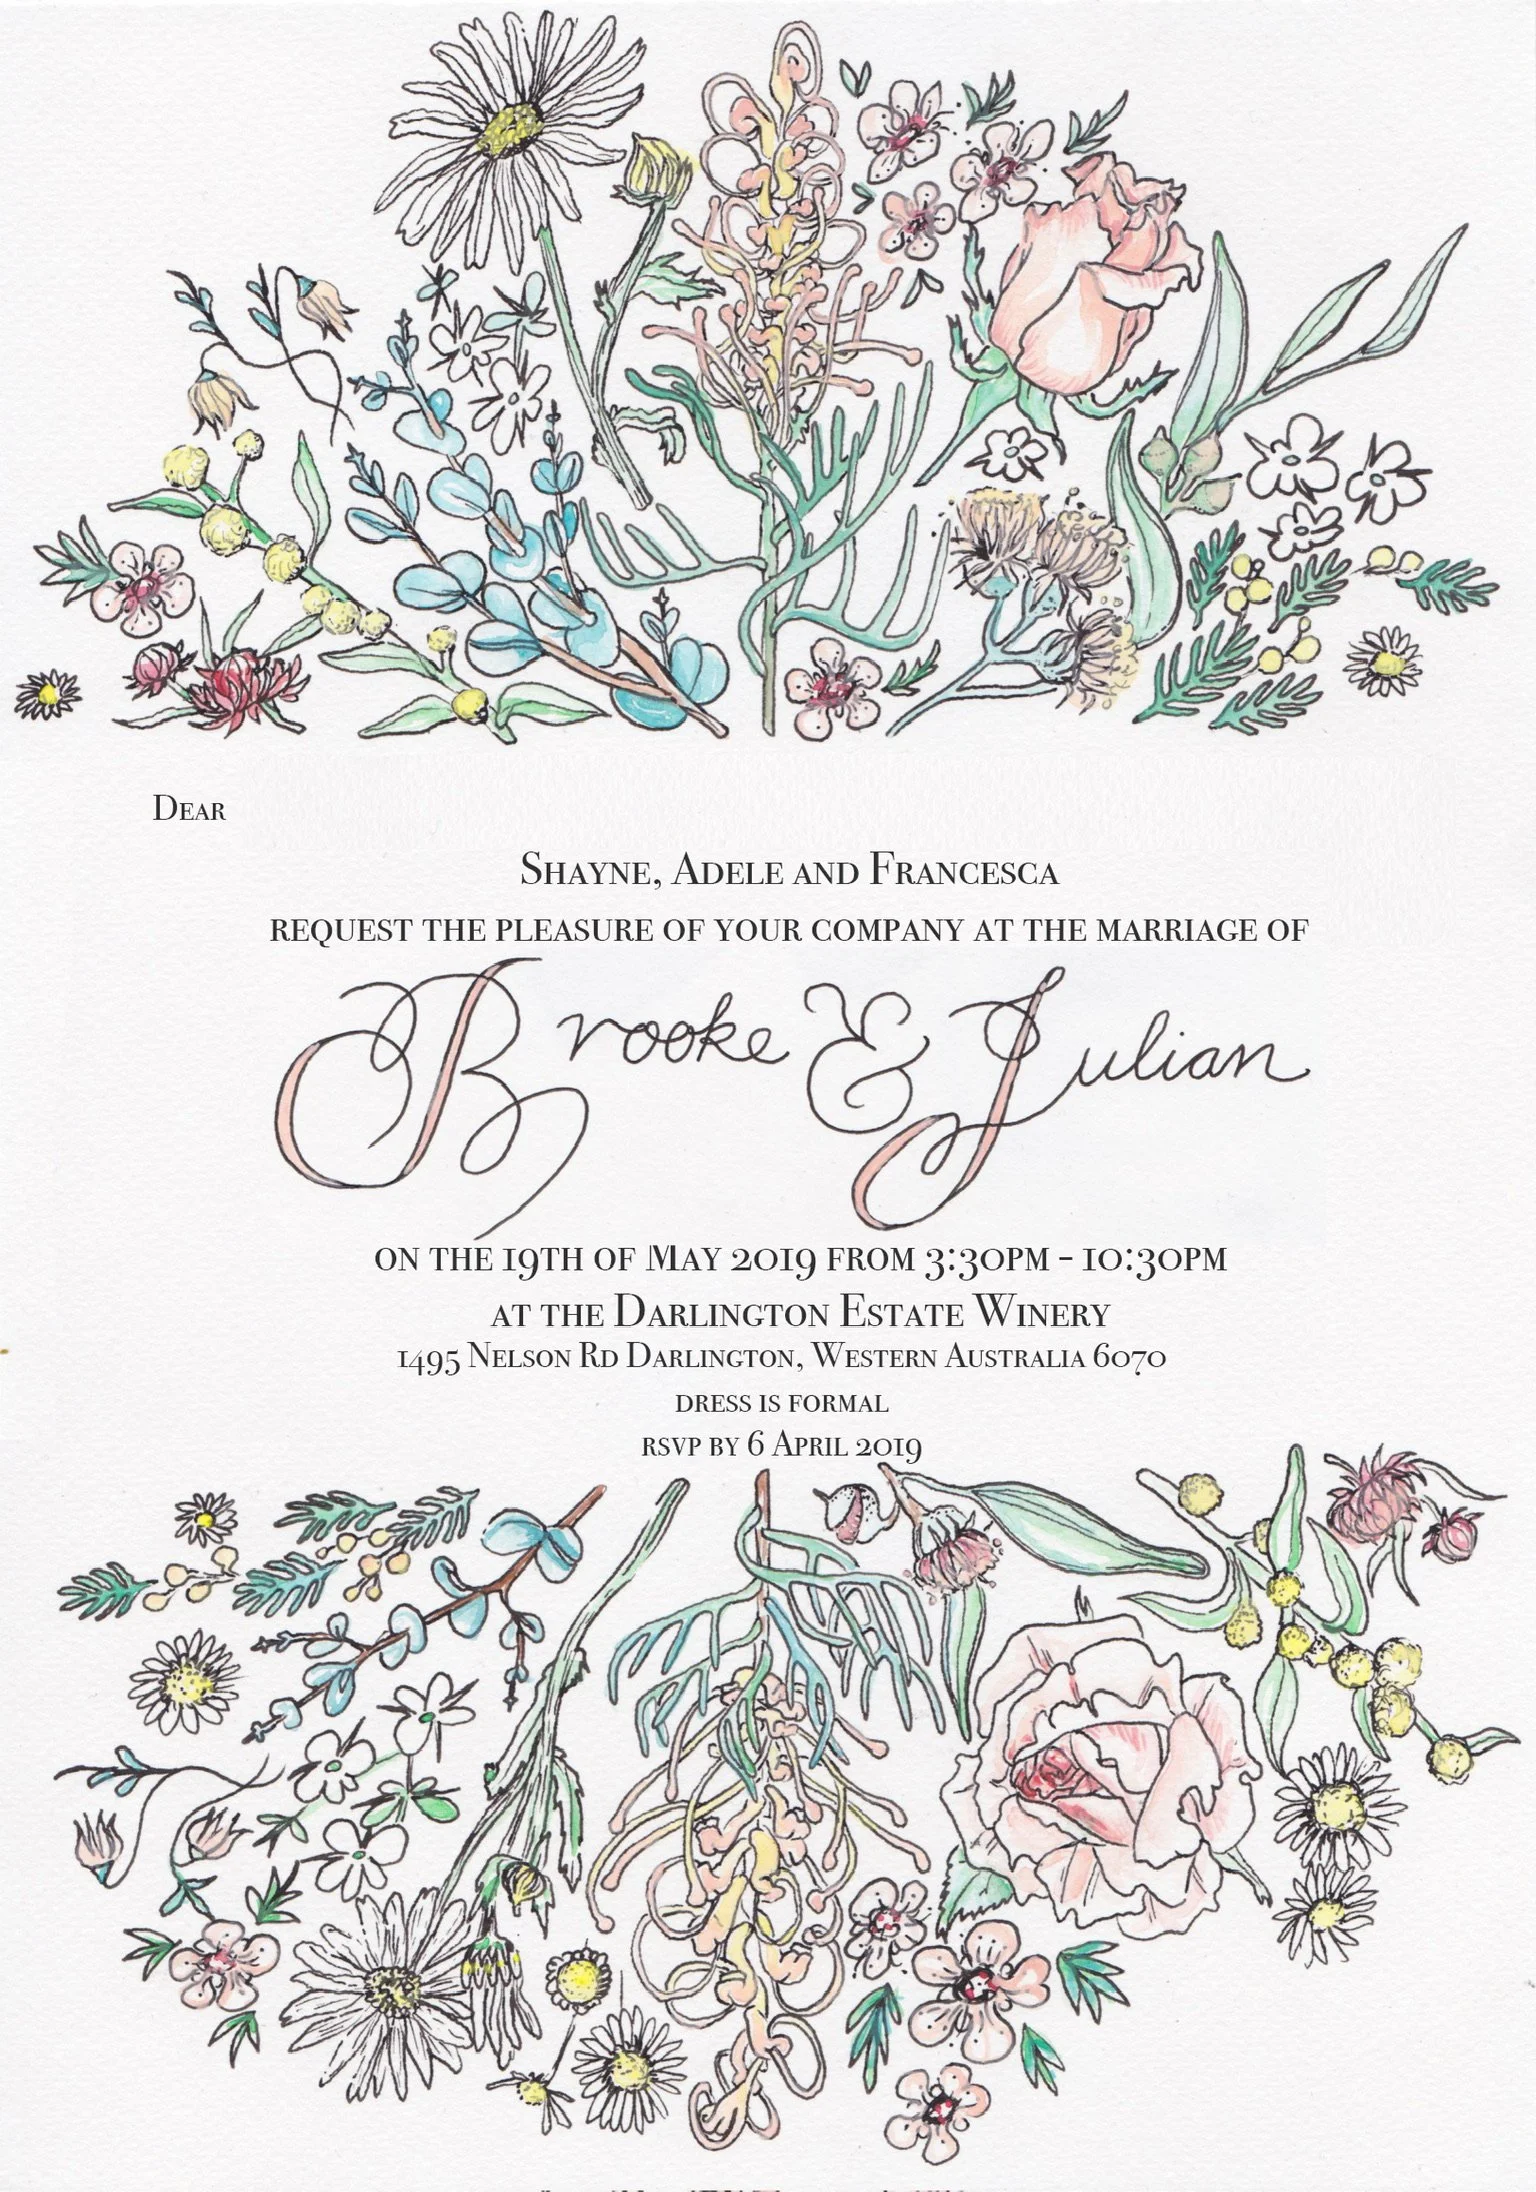 Dear
Shayne, Adele and Francesca
request the pleasure of your company at the marriage of
Brooke & Julian
on the 19th of May 2019 from 3:30pm - 10:30pm
at the Darlington Estate Winery
1495 Nelson Rd Darlington, Western Australia 6070
dress is formal
rsvp by 6 April 2019